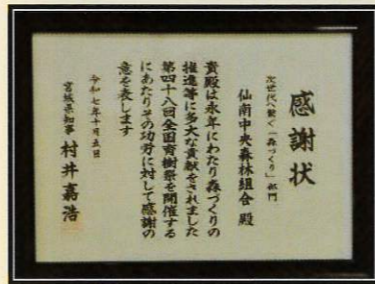 感謝状
次世代へ繋ぐ「森づくり」部門
仙南中央森林組合 殿
貴殿は永年にわたり森づくりの
推進等に多大な貢献をされました
第四十八回全国育樹祭を開催する
にあたりその功労に対して感謝の
意を表します
令和七年十月五日
宮城県知事 村井嘉浩